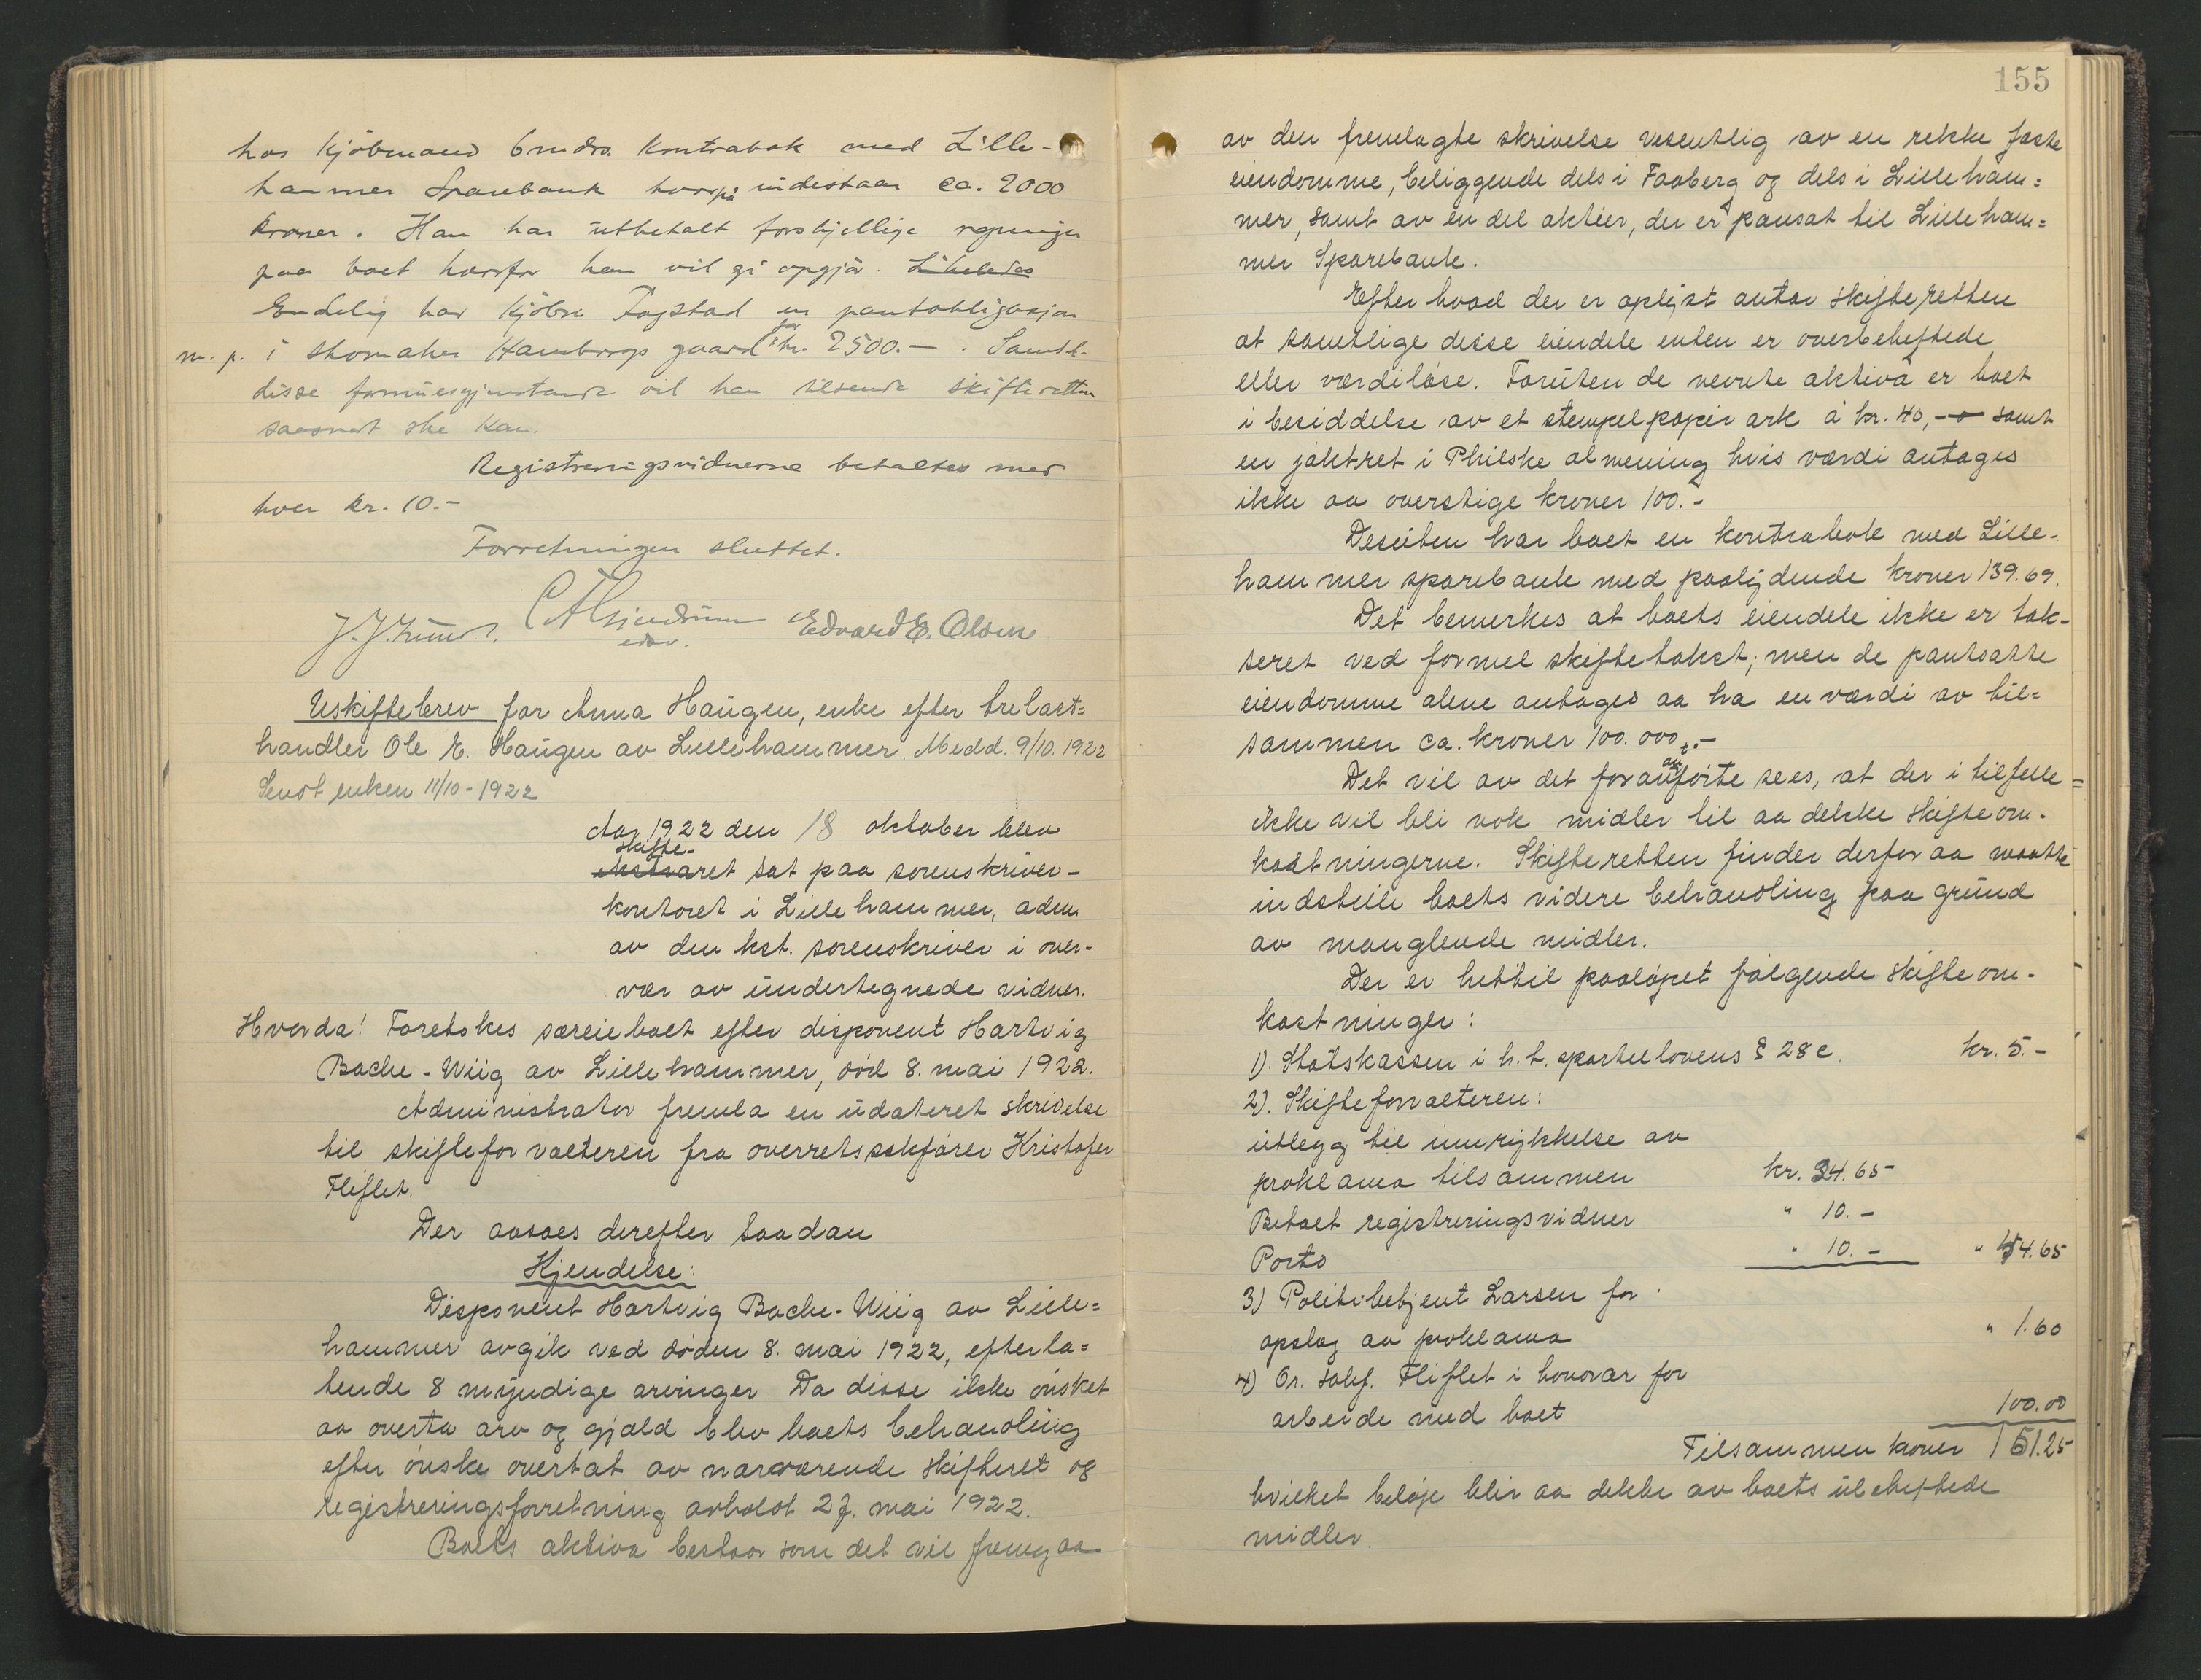 hos kjöbmand endra kontrabok med Lille-
hammer Sparebank hvorpå indestaar ca. 2000
kroner. Han har utbetalt forskjellige regninger
paa boet hvorfor han vil gi opgjör. Likeledes
Endelig har kjöbm Fagstad en pantobligasjon
m. p. i skomaker Hambergs gaard for kr. 2500.- . Samtl.
disse formuesgjenstande vil han tilsende skifteretten
saasnart ske kan.
Registreringsvidnerne betaltes med
hver kr. 10.-
Forretningen sluttet.
Edvard E. Olsen
edsv.
Uskiftebrev for Anna Haugen, enke efter trelast=
handler Ole E. Haugen av Lillehammer. Medd. 9/10. 1922
Sendt enken 11/10-1922
Aar 1922 den 18 oktober blev
skifte-
ekstraret sat paa sorenskriver-
kontoret i Lillehammer, adm.
av den kst. sorenskriver i over-
vær av undertegnede vidner.
Hvorda! Foretokes særeieboet efter disponent Hartvig
Bache-Wiig av Lillehammer, död 8. mai 1922.
Administrator fremla en udateret skrivelse
til skifteforvalteren fra overretssakförer Kristofer
Fliflet.
Der avsaes derefter saadan
Kjendelse:
Disponent Hartvig Bache-Wiig av Lille=
hammer avgik ved döden 8. mai 1922, efterla=
tende 8 myndige arvinger. Da disse ikke önsket
aa overta arv og gjæld blev boets behandling
efter önske overtat av nærværende skifteret og
registreringsforretning avholdt 27. mai 1922.
Boets aktiva bestaar som det vil fremgaa
155
av den fremlagte skrivelse vesentlig av en rekke faste
eiendomme, beliggende dels i Faaberg og dels i Lilleham=
mer, samt av en del aktier, der er pansat til Lilleham=
mer Sparebank.
Efter hvad der er oplyst antar skifteretten
at samtlige disse eiendele enten er overbeheftede
eller værdilöse. Foruten de nevnte aktiva er boet
i besiddelse av et stempelpapir ark á kr. 40,- samt
en jaktret i Philske almening hvis værdi antages
ikke aa overstige kroner 100.-
Desuten har boet en kontrabok med Lille-
hammer sparebank med paalydende kroner 139.69.
Det bemerkes at boets eiendele ikke er tak-
seret ved formel skiftetakst; men de pantsatte
eiendomme alene antages aa ha en værdi av til=
sammen ca. kroner 100.000,-
Det vil av det foranförte sees, at der i tilfelle
ikke vil bli nok midler til aa dekke skifteom-
kostningerne. Skifteretten finder derfor aa maatte
indstille boets videre behandling paa grund
av manglende midler.
Der er hittil paalöpet fölgende skifteom-
kostninger:
1). Statskassen i h. t. sportellovens § 28 c. kr. 5.-
2). Skifteforvalteren:
utlegg til innrykkelse av
proklama tilsammen kr. 34.65-
Betalt registreringsvidner " 10.-
Porto " 10.- " 54.65
3) Politibetjent Larsen for
opslag av proklama " 1.60
4) Or. sakf. Fliflet i honorar for
arbeide med boet 100.00
Tilsammen kroner 161.25
hvilket belöp blir aa dekke av boets ubeheftede
midler.